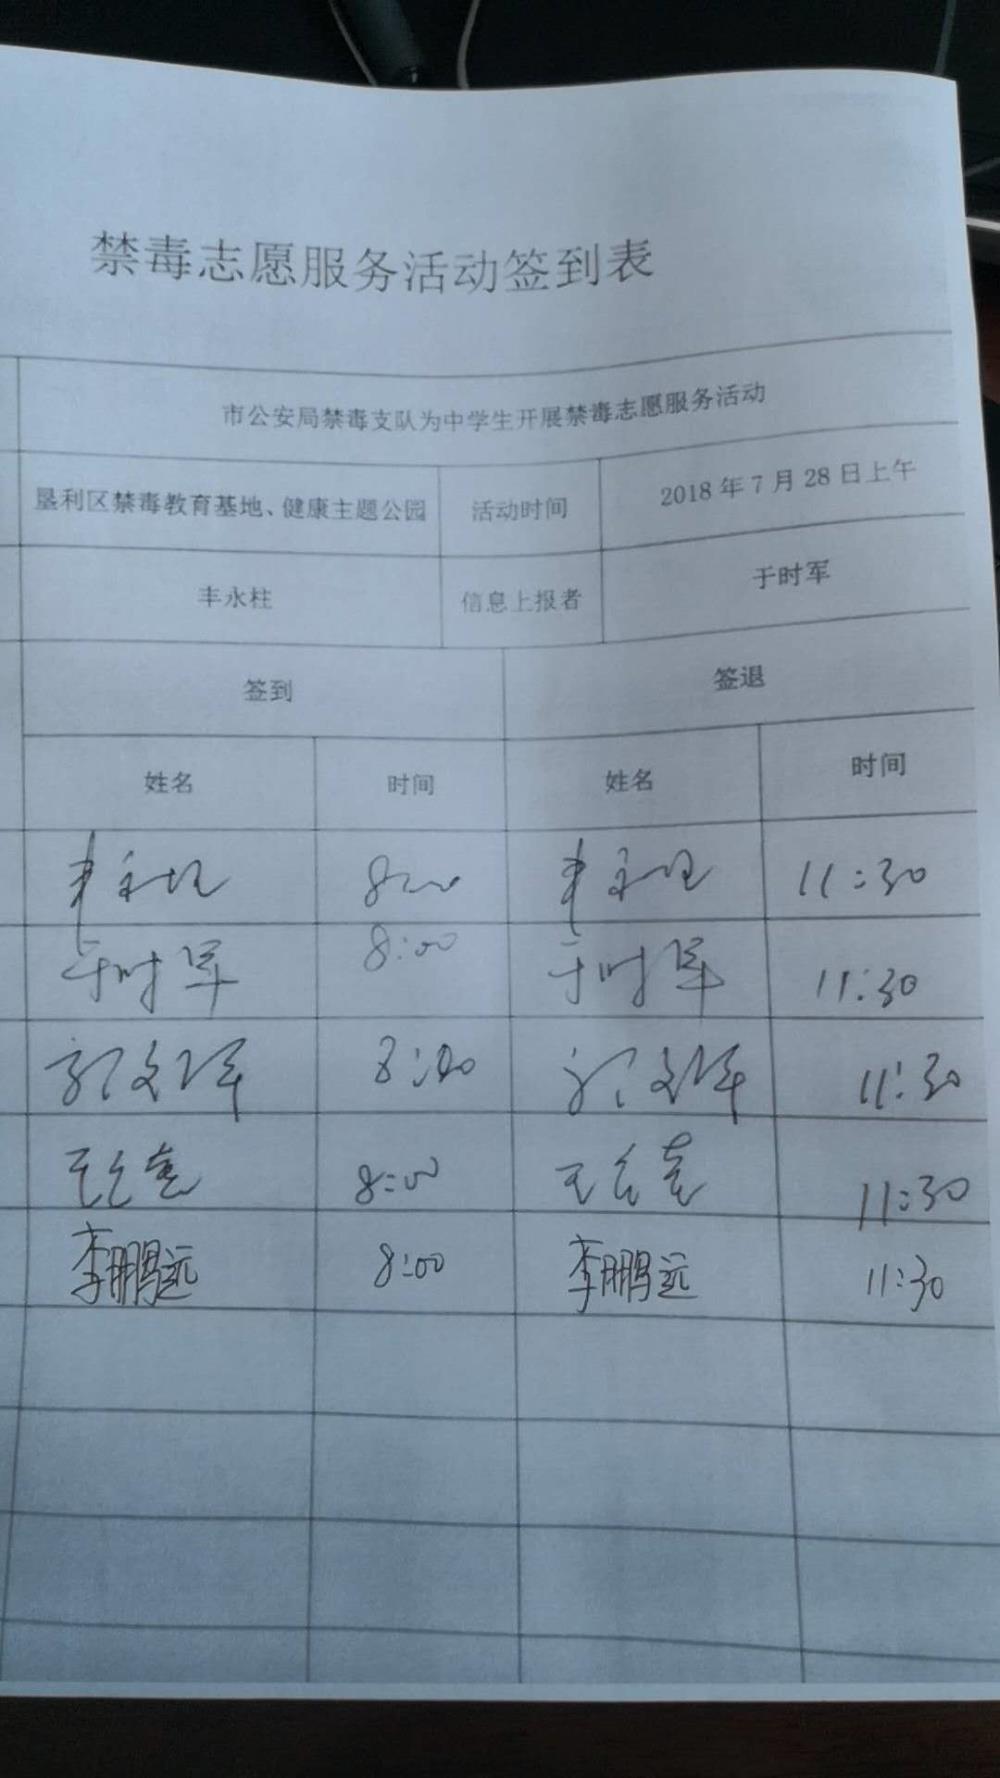 禁毒志愿服务活动签到表
市公安局禁毒支队为中学生开展禁毒志愿服务活动
垦利区禁毒教育基地、健康主题公园 活动时间 2018年7月28日上午
丰永柱 信息上报者 于时军
签到 签退
姓名 时间 姓名 时间
丰永柱 8:00 丰永柱 11:30
于时军 8:00 于时军 11:30
8:00 11:30
8:00 11:30
李鹏远 8:00 李鹏远 11:30